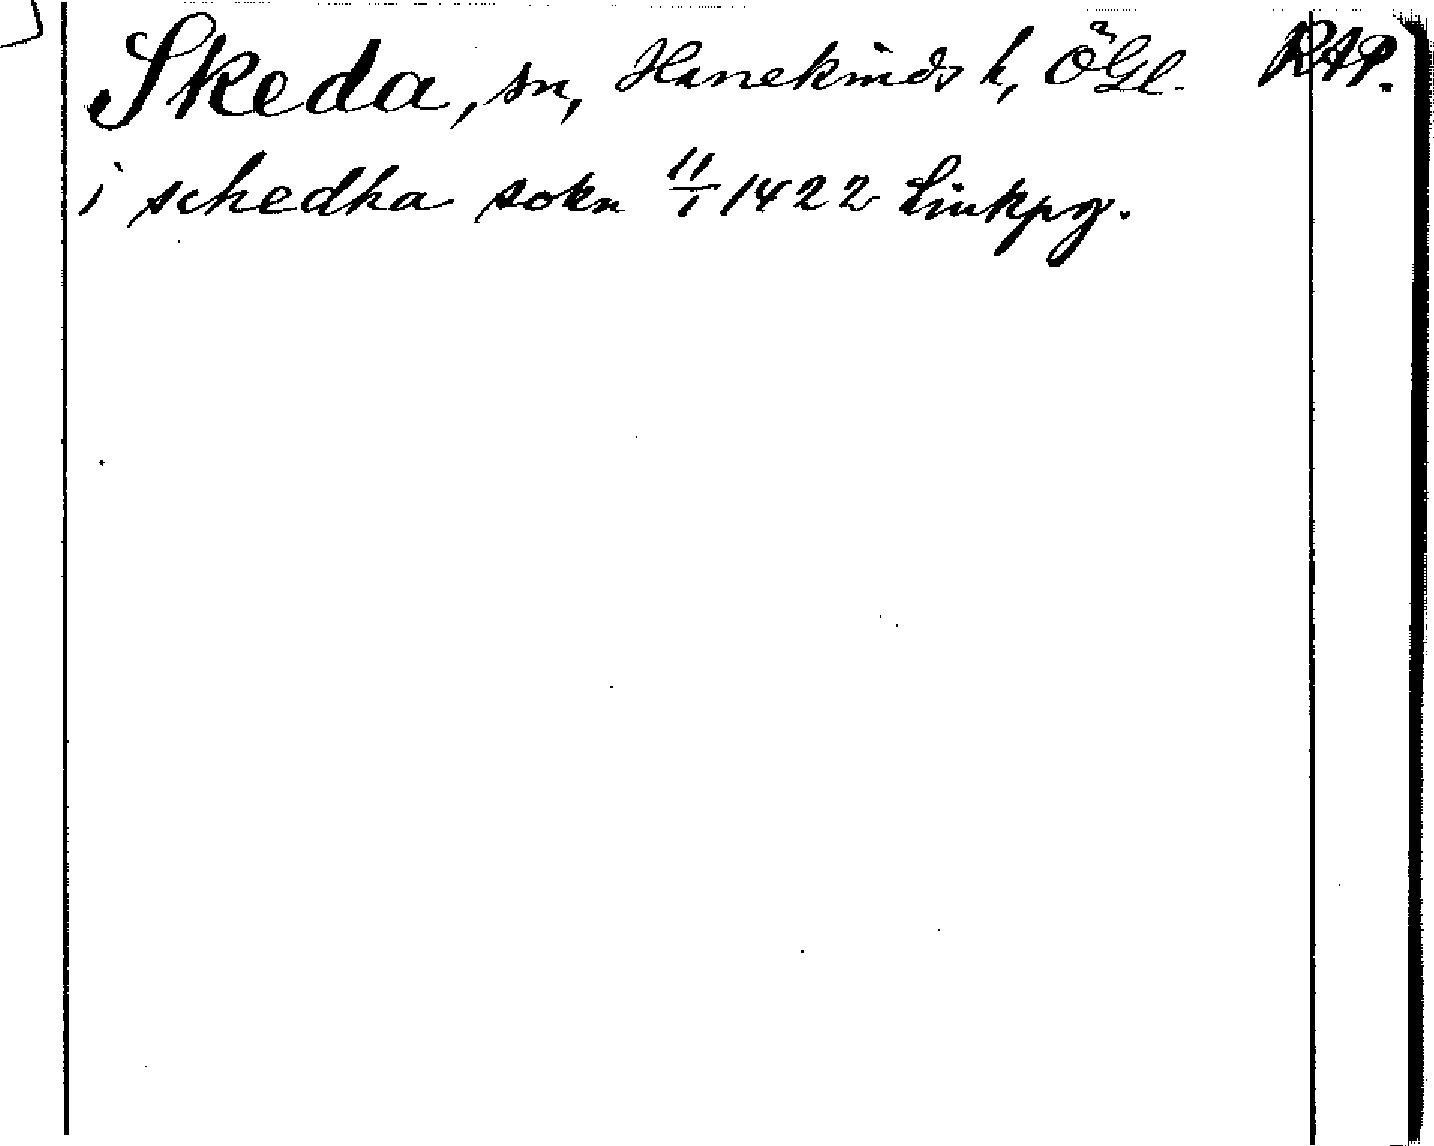 Skeda, sn, Hanekinds h, ÖGl. RAP.
i schedha sokn 11/1 1422 Linkpg.